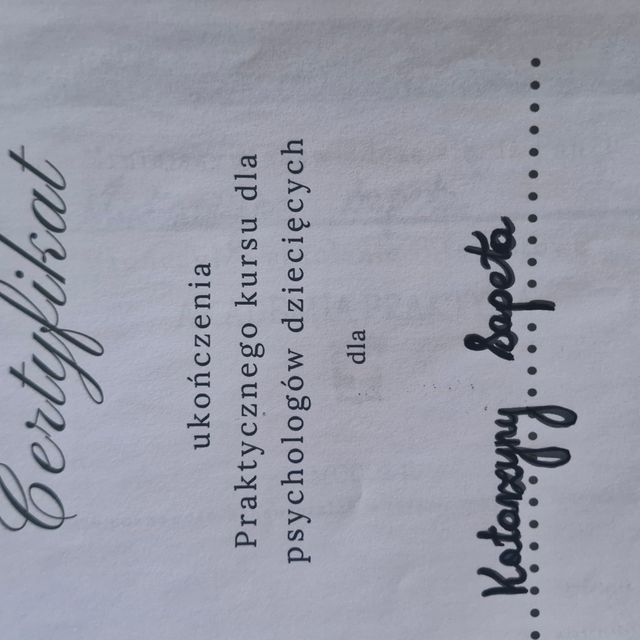 Certyfikat
ukończenia
Praktycznego kursu dla
psychologów dziecięcych
dla
Katarzyny Sapeta